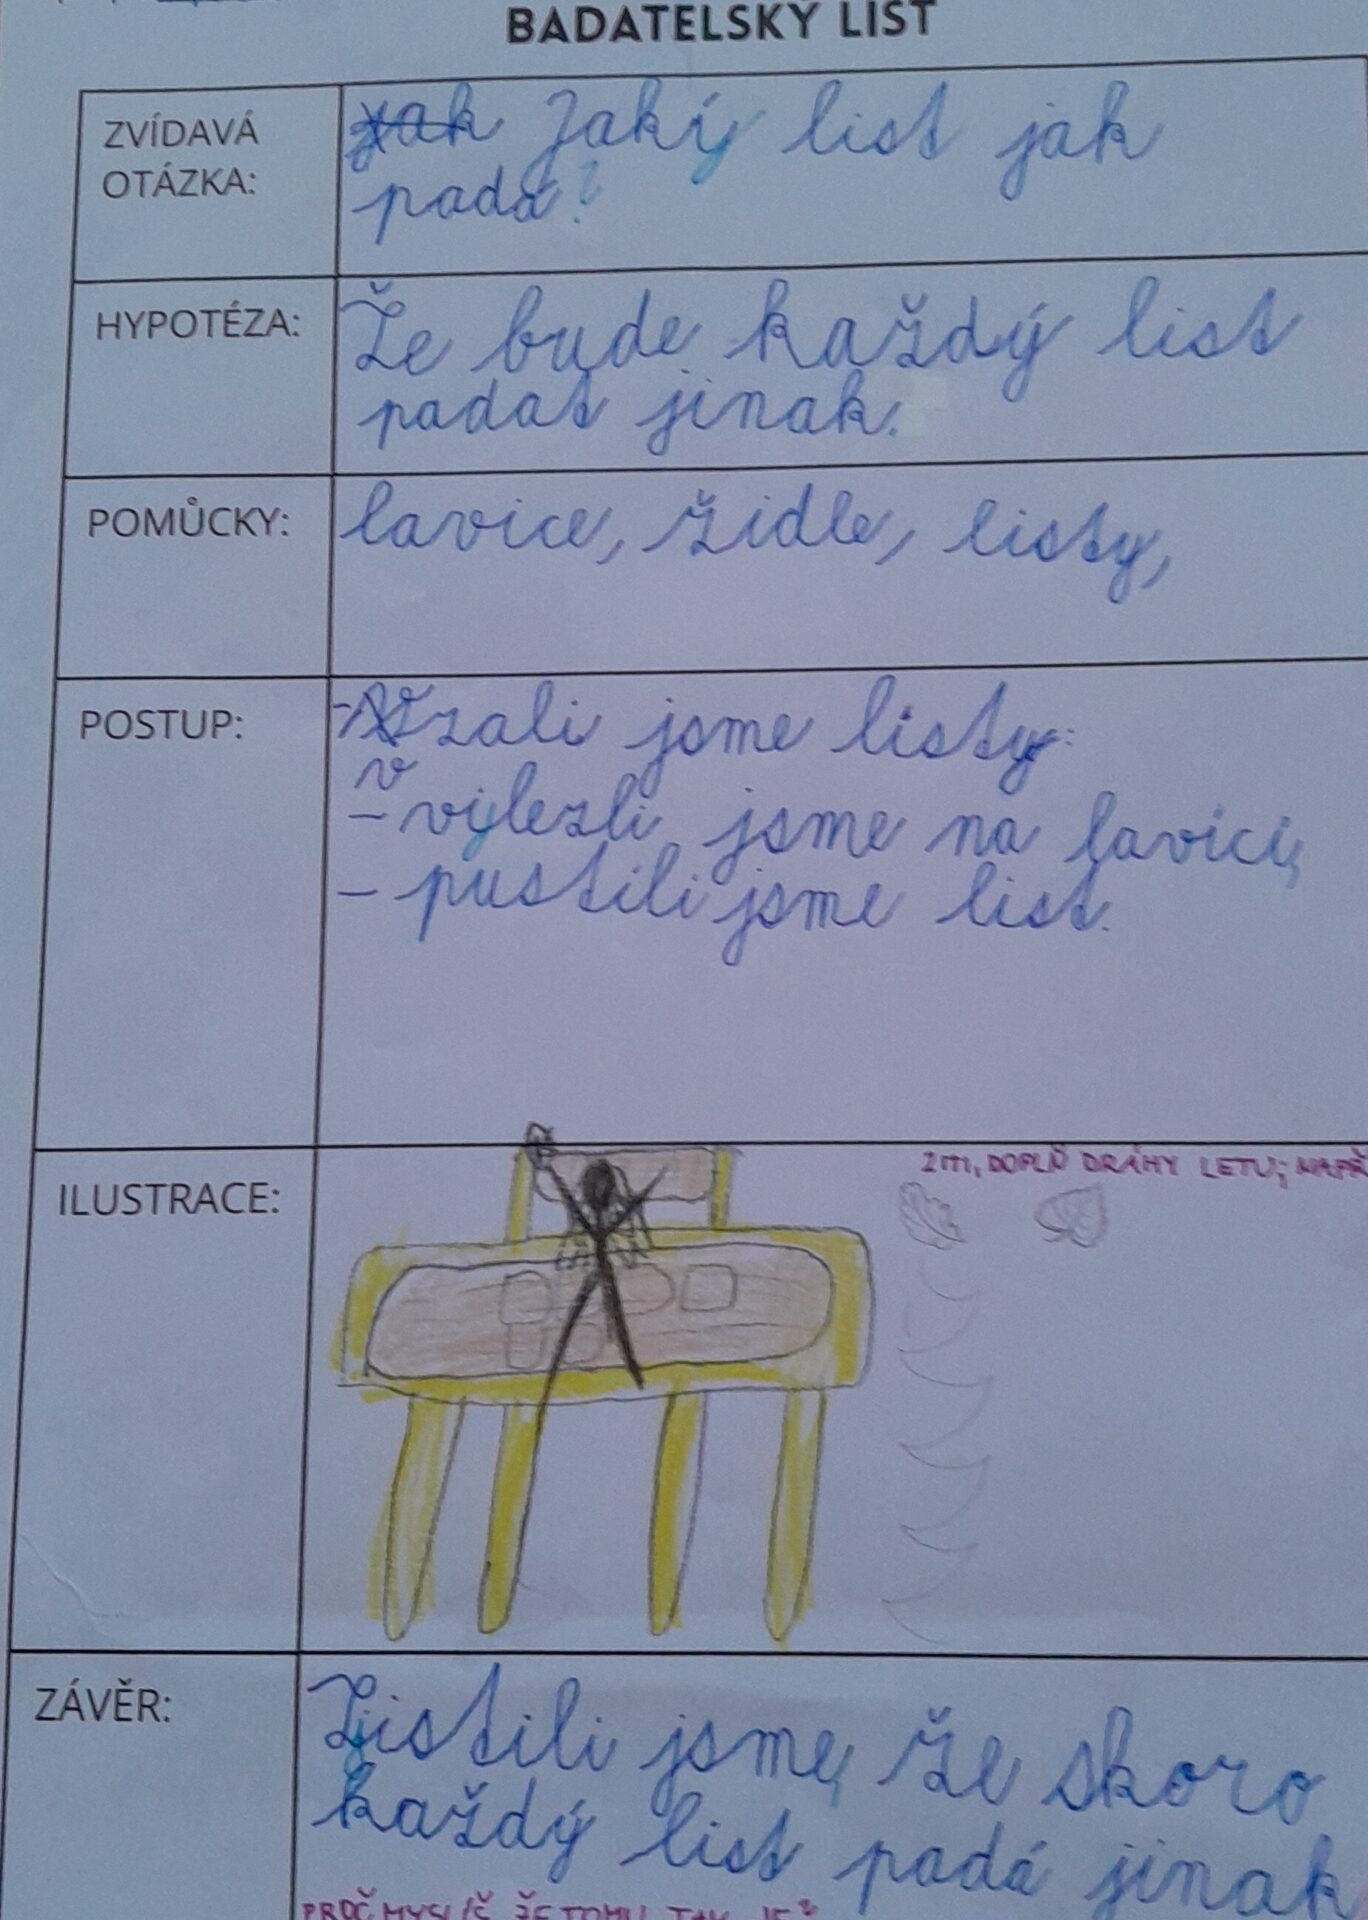 BADATELSKÝ LIST
ZVÍDAVÁ
OTÁZKA:
jak Jaký list jak
padá?
HYPOTÉZA:
Že bude každý list
padat jinak.
POMŮCKY:
lavice, židle, listy,
POSTUP:
- Vzali jsme listy.
v
- vylezli jsme na lavici,
- pustili jsme list.
ILUSTRACE:
DOPLŇ DRÁHY LETU; NAPŘ
ZÁVĚR:
Zjistili jsme, že skoro
každý list padá jinak
PROČ MYSLÍŠ ŽE TOMU TAK JE?